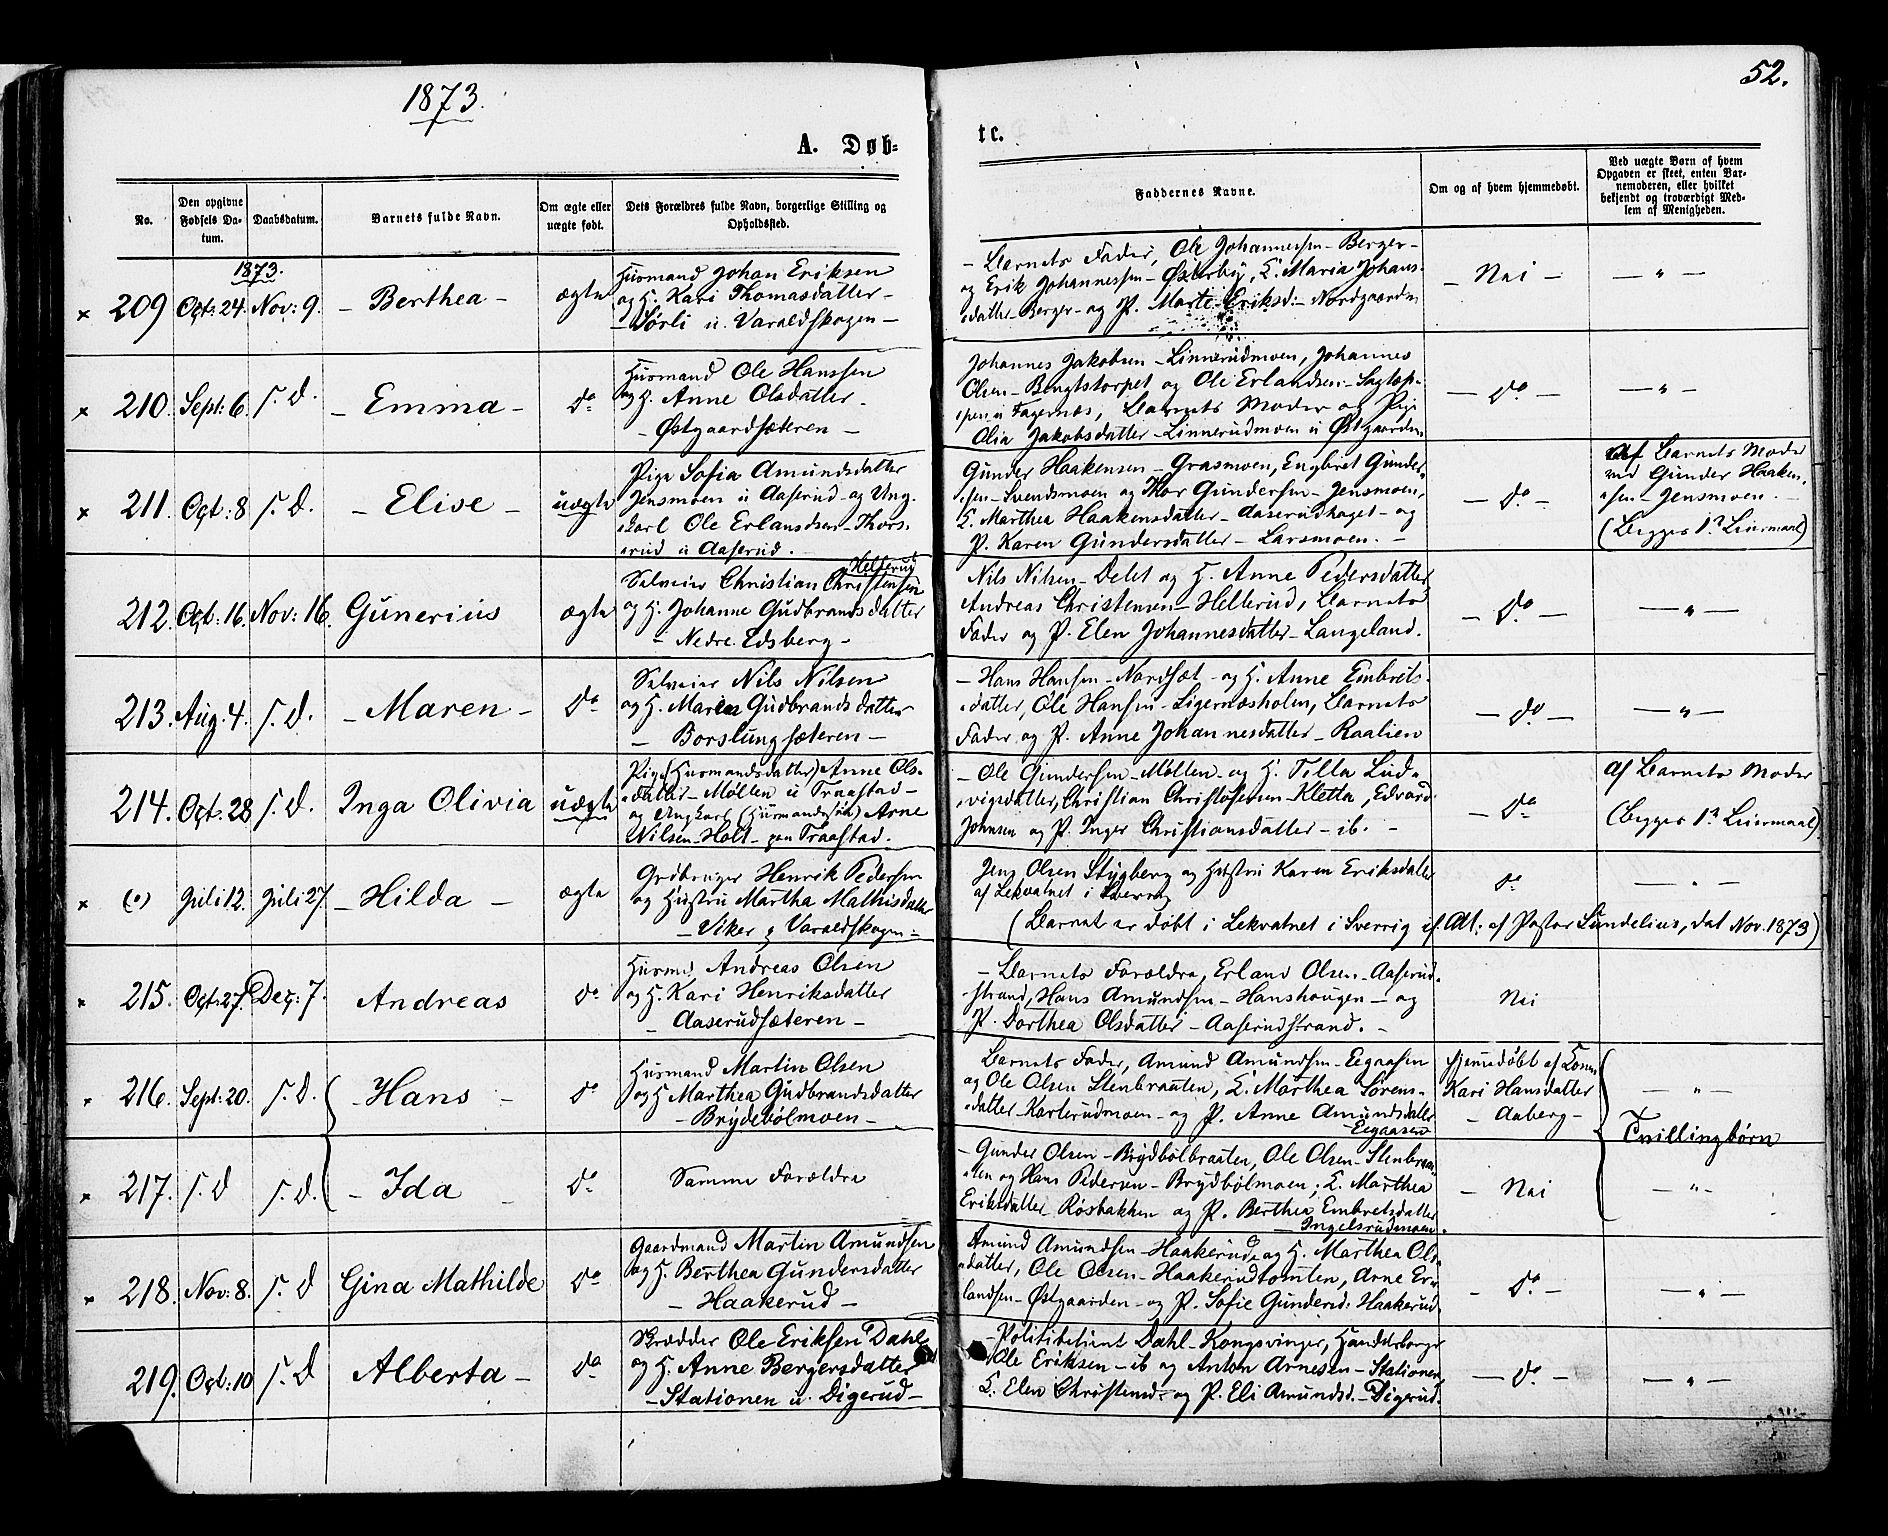 1873.
52.
A. Døb-
tc.
No.
Den opgivne Fødsels Datum.
Daabsdatum.
Barnets fulde Navn.
Om ægte eller uægte født.
Dets Forældres fulde Navn, borgerlige Stilling og Opholdssted.
Faddernes Navne.
Om og af hvem hjemmedøbt.
Ved uægte Børn af hvem Opgaven er skeet, enten Barnemoderen, eller hvilket bekjendt og troværdigt Medlem af Menigheden.
1873.
× 209 Oct: 24. Nov: 9. – Berthea – ægte
Husmand Johan Eriksen
og H. Kari Thomasdatter –
– Sørli u. Varaldskogen –
– Barnets Fader, Ole Johannessen – Berger –
og Erik Johannessen – Østerby, E. Maria Johans-
datter – Berger – og P. Marte Eriksd: – Nordgaarden
– Nei –
— " —
× 210. Sept: 6. s. d. – Emma – do
Husmand Ole Hanssen
og H. Anne Olsdatter –
– Østgaardsæteren –
Johannes Jakobsen – Linnerudmoen, Johannes
Olsen – Bengtstorpet og Ole Erlandsen – Sagtop-
pen u Fagernæs, Barnets Moder og Pige
Olia Jakobsdatter – Linnerudmoen u Østgaarden
– do –
— " —
× 211. Oct: 8 s. d. – Elise – uægte
Pige Sofia Amundsdatter
Jensmoen u Aaserud – og Ung-
karl Ole Erlandsen – Thors-
erud u Aaserud.
Gunder Haakensen – Grasmoen, Engbret Gunder-
sen – Svendsmoen og Thor Gundersen – Jensmoen,
E. Marthea Haakensdatter – Aaserudhaget – og
P. Karen Gundersdatter – Larsmoen. –
– do –
af Barnets Moder
ved Gunder Haaken-
sen – Jensmoen. –
(Begges 1ste Leiermaal)
212. Oct: 16. Nov: 16. Gunerius ægte
Hellerud
Selveier Christian Christensen
og H. Johanne Gudbrandsdatter
– Nedre Edsberg –
Nils Nilsen – Delet og H. Anne Pedersdatter
Andreas Christensen – Hellerud, Barnets
Fader og P. Elen Johannesdatter – Langeland.
– do –
— " —
213. Aug. 4. s. d. – Maren – do
Selveier Nils Nilsen
og H. Maren Gudbrandsdatter
– Borslungsæteren –
– Hans Hansen – Nordsæt – og H. Anne Embrets-
datter, Ole Hansen – Ligernæsholen, Barnets
Fader og P. Anne Johannesdatter – Raalien
– do –
— " —
214. Oct: 28 s. d. Inga Olivia uægte
Pige (Husmandsdatter) Anne Ols-
datter – Møllen u Traastad –
og Ungkarl (Husmandssøn) Arne
Nilsen – Holt – paa Traastad.
– Ole Gundersen – Møllen – og H. Tilla Lud-
vigsdatter, Christian Christofersen – Kletta, Edvard
Johnsen og P. Inger Christiansdatter – ib. –
– do
af Barnets Moder
(begges 1ste Leiermaal)
× (o) Juli 12. Juli 27 – Hilda – ægte
Grdbruger Henrik Pedersen
og Hustru Martha Mathisdatter
– Viker – Varaldskogen –
Jens Olsen Stygberg og Hustru Karen Eriksdatter
af Lekvatnet i Sverrig
do
— " —
(Barnet er døbt i Lekvatnet i Sverrig if. At: af Pastor Sundelius, dat Nov. 1873)
× 215. Oct: 27. Dec: 7. Andreas do
Husmd. Andreas Olsen
og H. Kari Henriksdatter
– Aaserudsæteren –
– Barnets Forældre, Erland Olsen – Aaserud-
strand, Hans Amundsen – Hanshougen – og
P. Dorthea Olsdatter – Aaserudstrand. –
Nei
216. Sept: 20. s. d. – Hans – do
Husmand Martin Olsen
og H Marthea Gudbrandsdatter
– Brydebølmoen –
Barnets Fader, Amund Amundsen – Eegaasen
og Ole Olsen Stenbraaten, E. Marthea Sørens-
datter – Karterudmoen – og P. Anne Amundsdatter
Eegaasen
hjemedøbt af Konen
Kari Hansdatter
– Aaberg –
— " —
Tvillingbørn
× 217. s. d s. d. – Ida – do
Samme Forældre
– Gunder Olsen – Brydbølbraaten, Ole Olsen – Stenbraa-
ten og Hans Pedersen – Brydbølmoen; E. Marthea
Eriksdatter Røsbakken og P. Berthea Embretsdatter
– Ingelsrudmoen.
– Nei
— " —
× 218. Nov: 8. s. d Gina Mathilde do
Gaardmand Martin Amundsen
og H. Berthea Gundersdatter
– Haakerud –
Amund Amundsen – Haakerud og H. Marthea Ols-
datter, Ole Olsen – Haakerudtomten, Arne Er-
landsen – Østgaarden – og P. Sofie Gundersd: Haakerud.
– do –
— " —
219. Oct: 10 s. d Alberta – do
Skrædder Ole Eriksen Dahl
og H. Anne Bergersdatter
– Stationen u. Digerud –
– Politibetjent Dahl – Kongsvinger, Handelsborger
Ole Eriksen – ib og Anton Arnesen – Stationen
E. Elen Christensd: og P. Eli Amundsd. – Digerud.
– do –
— " —